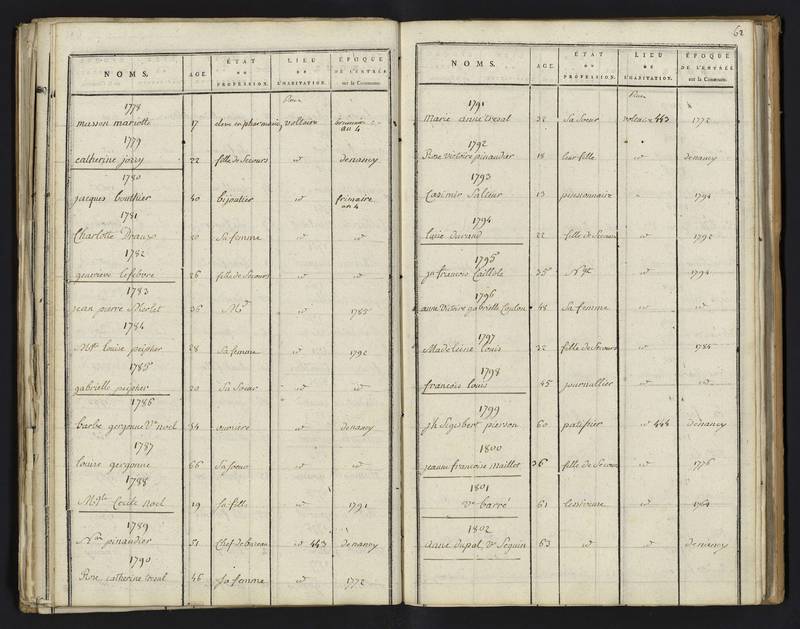 NOMS. AGE. ÉTAT OU PROFESSION. LIEU DE L'HABITATION. ÉPOQUE DE L'ENTRÉE sur la Commune.
Rue
1778
musson mariotte 17 eleve en pharmacie voltaire brumaire an 4
1779
catherine jorry 22 fille de Secours id denancy
1780
jacques bouthier 40 bijoutier id frimaire an 4
1781
Charlotte Draux 20 Sa femme id id
1782
genevieve lefebvre 26 fille de Secours id id
1783
jean pierre Merlet 36 Md id 1785
1784
Mgte Louise peipher 28 Sa femme id 1792
1785
gabrielle peipher 20 Sa Soeur id id
1786
barbe gergonne Ve noel 84 ouvriere id denancy
1787
louise gergonne 66 Sa soeur id id
1788
Mgte Cecile noel 19 Sa fille id 1791
1789
Nas pinaudier 51 Chef de bureau id 443 denancy
1790
Rose catherine treval 46 Sa femme id 1772
62
NOMS. AGE. ÉTAT OU PROFESSION. LIEU DE L'HABITATION. ÉPOQUE DE L'ENTRÉE sur la Commune.
Rue
1791
Marie anne treval 32 Sa Soeur voltaire 443 1772
1792
Rose Victoire pinaudier 18 leur fille id denancy
1793
Casimir Salleur 13 pensionnaire 1794
1794
Lucie durand 22 fille de Secours id 1792
1795
jn francois Caillole 35 Ngt id 1794
1796
anne Victoire gabrielle 48 Sa femme id id
1797
Madeleine Louis 32 fille de Secours id 1785
1798
francois Louis 45 journallier id id
1799
jh Sigisbert pierson 60 patissier id 444 denancy
1800
jeanne francoise maillet 36 fille de Secours id 1776
1801
Ve barré 61 lessiveuse id 1764
1802
anne dupal Ve Seguin 63 id id denancy